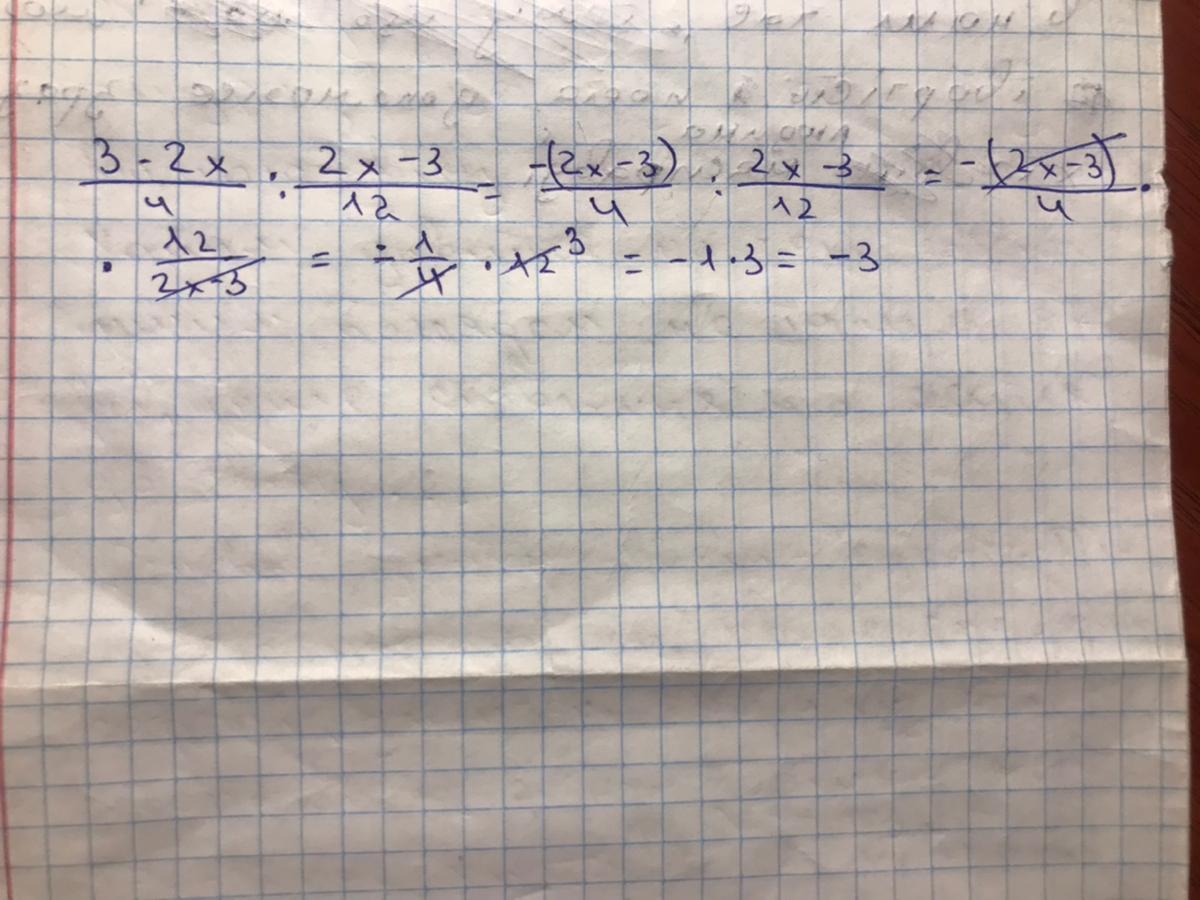 3 - 2x / 4 : 2x - 3 / 12 = -(2x - 3) / 4 : 2x - 3 / 12 = -(2x - 3) / 4 ·
· 12 / 2x - 3 = - 1 / 4 · 12 3 = - 1 · 3 = - 3